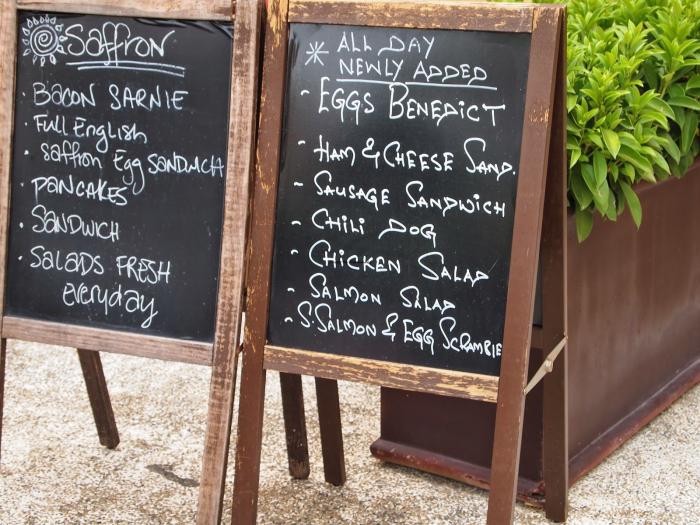 Saffron
· BACON SARNIE
· Full English
· Saffron Egg SANDWICH
· PANCAKES
· SANDWICH
· SALADS FRESH
everyday
* ALL DAY
NEWLY ADDED
- EGGS BENEDICT
- HAM & CHEESE SAND.
- SAUSAGE SANDWICH
- CHILI DOG
- CHICKEN SALAD
- SALMON SALAD
- S.SALMON & EGG SCRAMBLE